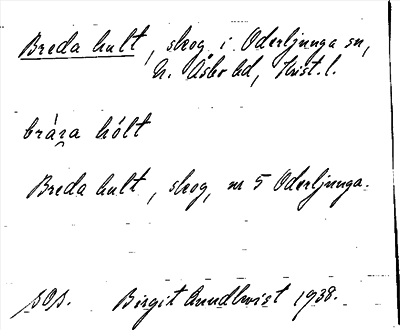 Breda hult, skog i Oderljunga sn,
N. Åsbo hd, Krist. l.
bràra hólt
Breda hult, skog, nr 5 Oderljunga.
Birgit 1938.